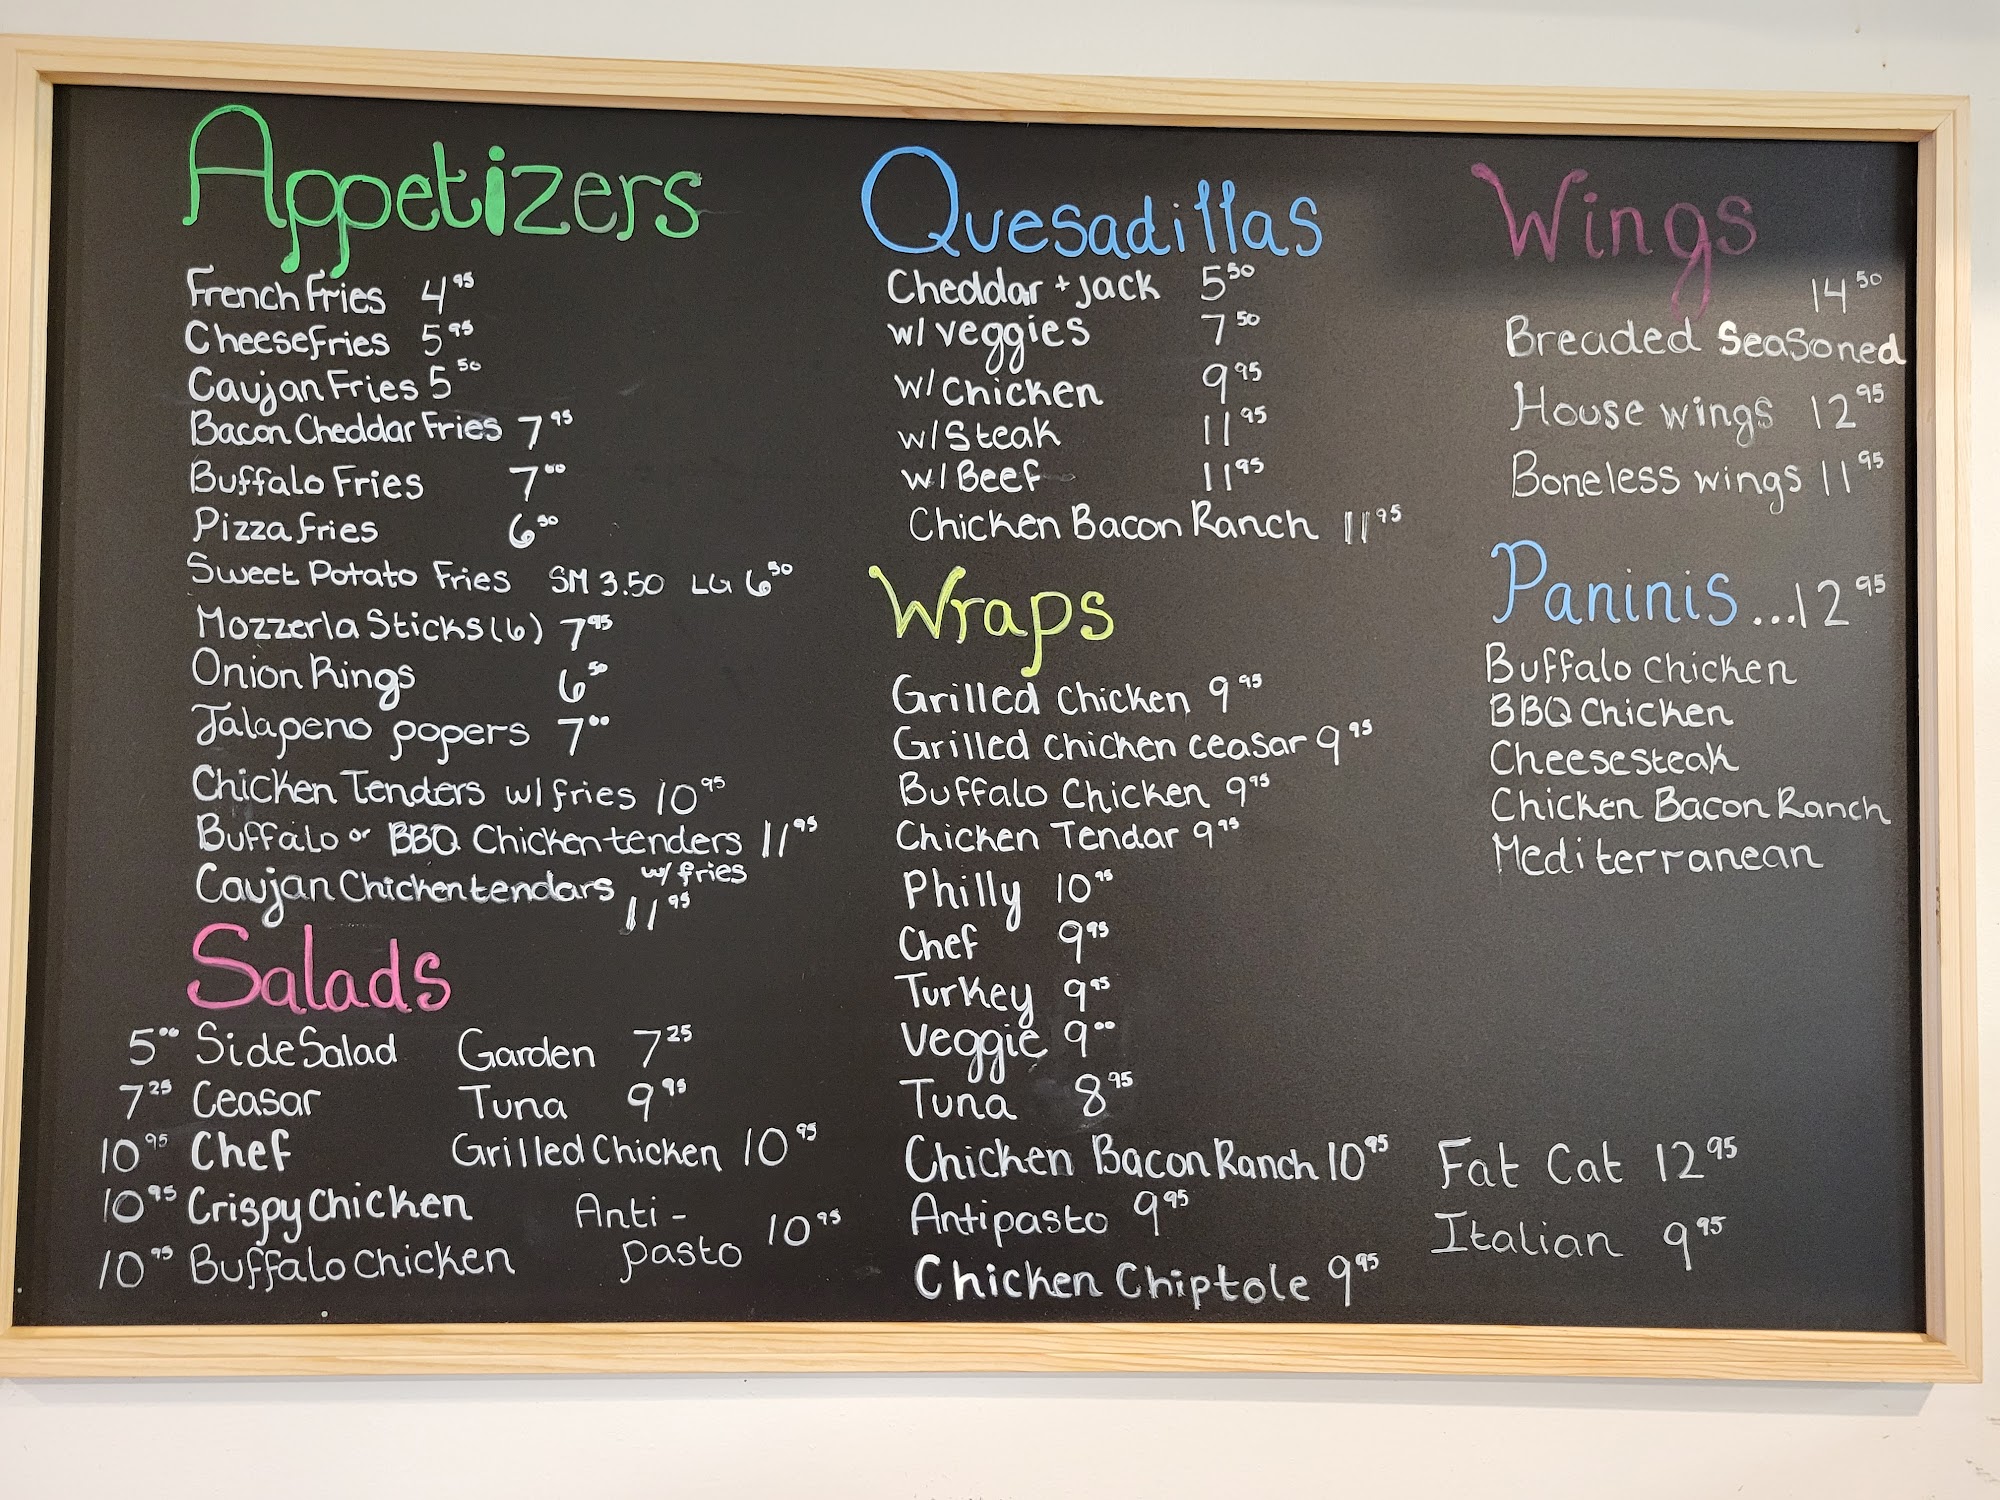 Appetizers
French Fries 4 95
Cheese Fries 5 95
Caujan Fries 5 50
Bacon Cheddar Fries 7 95
Buffalo Fries 7 00
Pizza fries 6 50
Sweet Potato Fries SM 3.50 LG 6 50
Mozzerla Sticks (6) 7 95
Onion Rings 6 50
Jalapeno popers 7 00
Chicken Tenders w/ fries 10 95
Buffalo or BBQ Chicken tenders 11 95
Caujan Chicken tendars w/ fries
11 95
Salads
5 00 Side Salad Garden 7 25
7 25 Ceasar Tuna 9 95
10 95 Chef Grilled Chicken 10 95
10 95 Crispy Chicken Anti-
pasto 10 95
10 95 Buffalo Chicken
Quesadillas
Cheddar + Jack 5 50
w/ veggies 7 50
w/ Chicken 9 95
w/ Steak 11 95
w/ Beef 11 95
Chicken Bacon Ranch 11 95
Wraps
Grilled Chicken 9 95
Grilled Chicken Ceasar 9 95
Buffalo Chicken 9 95
Chicken Tendar 9 95
Philly 10 95
Chef 9 95
Turkey 9 95
Veggie 9 00
Tuna 8 95
Chicken Bacon Ranch 10 95
Antipasto 9 95
Chicken Chiptole 9 95
Fat Cat 12 95
Italian 9 95
Wings
14 50
Breaded Seasoned
House wings 12 95
Boneless wings 11 95
Paninis...12 95
Buffalo Chicken
BBQ Chicken
Cheesesteak
Chicken Bacon Ranch
Mediterranean